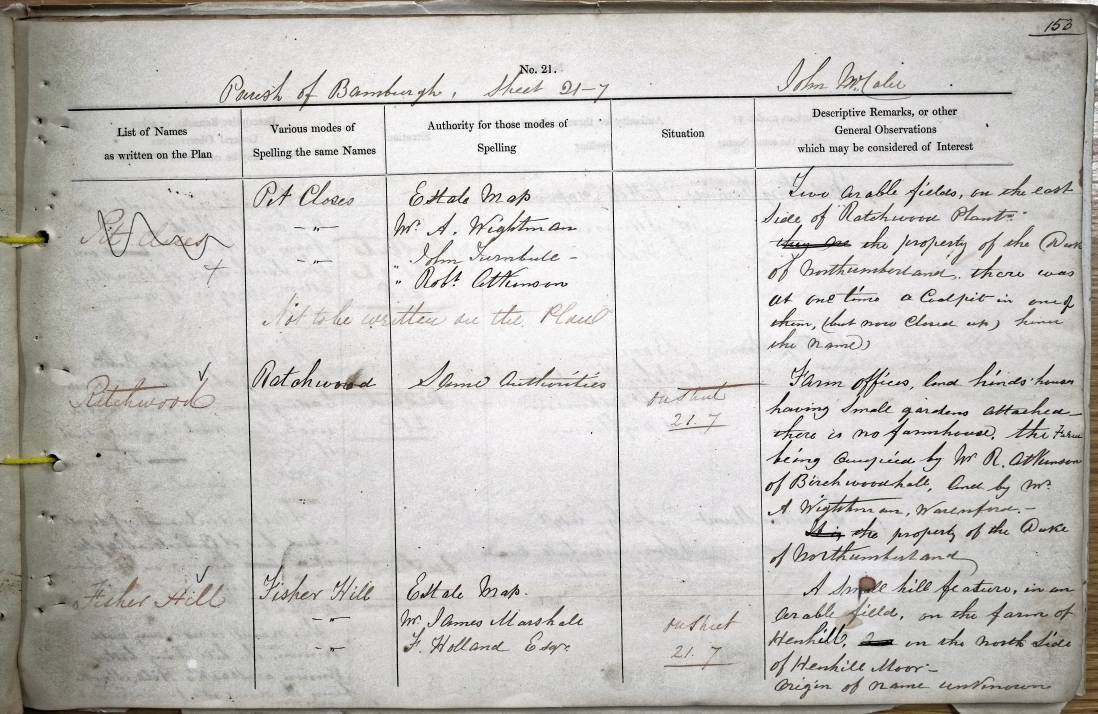 153
No. 21.
Parish of Bamburgh, Sheet 21-7
John McCalie
List of Names
as written on the Plan
Various modes of
Spelling the same Names
Authority for those modes of
Spelling
Situation
Descriptive Remarks, or other
General Observations
which may be considered of Interest
Pit Closes
Pit Closes
-"-
-"-
Estate Map
Mr. A. Wightman
" John Turnbull -
" Robt. Atkinson
Not to be written on the Plan
Two arable fields, on the east
Side of Ratchwood Plantn.
they are the property of the Duke
of Northumberland. there was
at one time a Coalpit in one of
them, (but now Closed up) hence
the name
Ratchwood
Ratchwood
Same Authorities
on Sheet
21.7
Farm offices, and hinds' houses
having Small gardens attached
there is no farmhouse. the Farm
being occupied by Mr R. Atkinson
of Birchwoodhall, and by Mr.
A Wightman, Warenford. -
It is the property of the Duke
of Northumberland
Fisher Hill
Fisher Hill
-"-
-"-
Estate Map.
Mr. James Marshall
F. Holland Esqr.
on Sheet
21.7
A Small hill feature, in an
arable field, on the farm of
Henhill, in the north Side
of Henhill Moor -
origin of name unknown